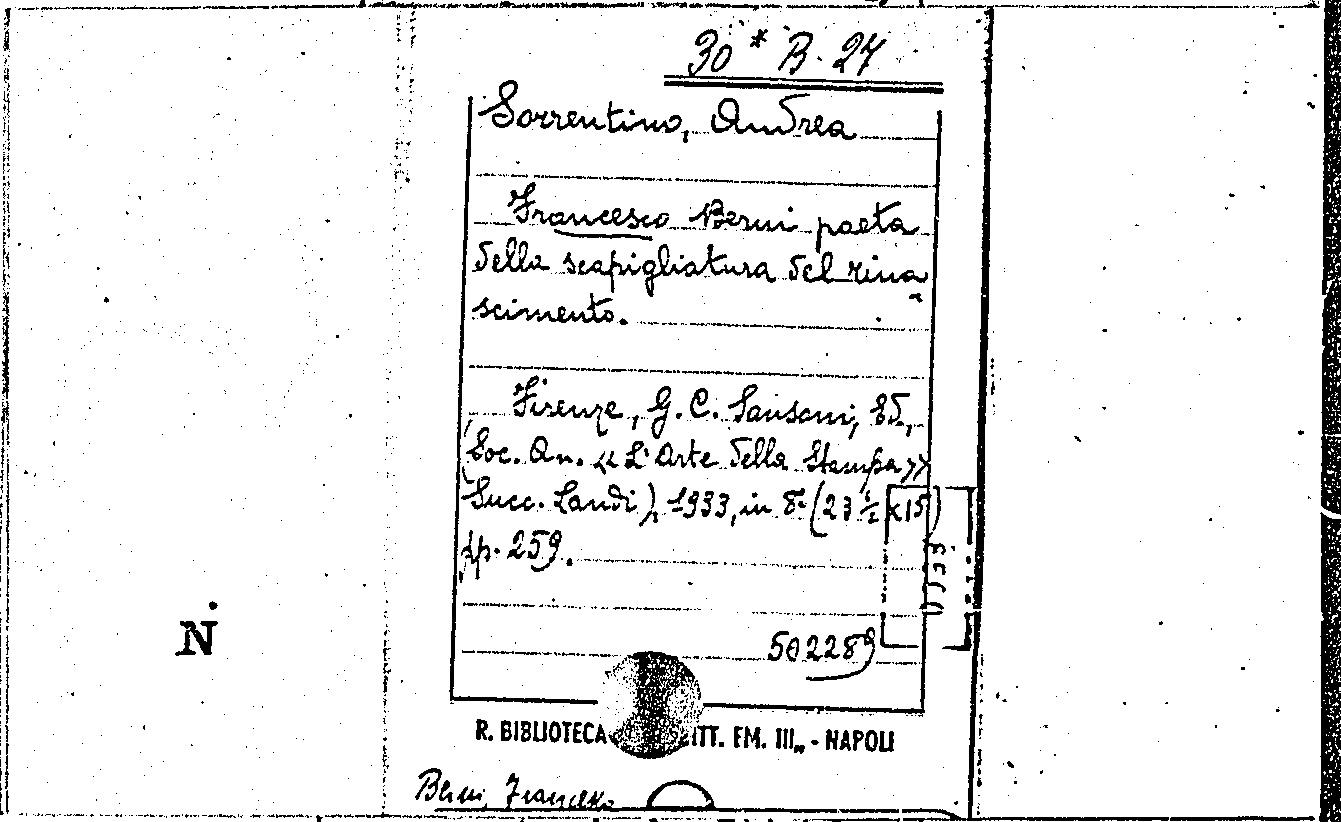 30* B. 27
Sorrentino, Andrea
Francesco Berni poeta
della scapigliatura del rina
scimento.
Firenze, G. C. Sansoni, Ed.,
(Soc. An. «L'Arte della Stampa»
Succ. Landi), 1933, in 8° (23 ½ x 15)
pp. 259.
502289
N
R. BIBLIOTECA ITT. EM. III„ - NAPOLI
Berni, Francesco